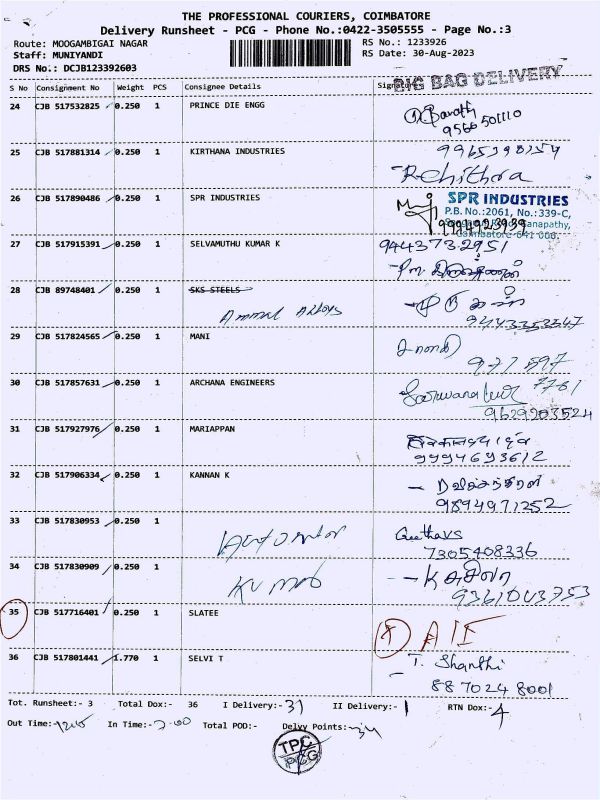 THE PROFESSIONAL COURIERS, COIMBATORE
Delivery Runsheet - PCG - Phone No.:0422-3505555 - Page No.:3
Route: MOOGAMBIGAI NAGAR RS No.: 1233926
Staff: MUNIYANDI RS Date: 30-Aug-2023
DRS No.: DCJB123392603
BIG BAG DELIVERY
S No Consignment No Weight PCS Consignee Details
24 CJB 517532825 0.250 1 PRINCE DIE ENGG
9566501110
25 CJB 517881314 0.250 1 KIRTHANA INDUSTRIES 9965398154
Rehithra
26 CJB 517890486 0.250 1 SPR INDUSTRIES SPR INDUSTRIES
P.B. No.:2061, No.:339-C,
9994923939
27 CJB 517915391 0.250 1 SELVAMUTHU KUMAR K 9443732951
28 CJB 89748401 0.250 1 SKS STEELS
Ammal Alloys
9443353347
29 CJB 517824565 0.250 1 MANI
30 CJB 517857631 0.250 1 ARCHANA ENGINEERS
9629903524
31 CJB 517927976 0.250 1 MARIAPPAN
9994693612
32 CJB 517906334 0.250 1 KANNAN K
9894971252
33 CJB 517830953 0.250 1
7305408336
34 CJB 517830909 0.250 1
Kumar
35 CJB 517716401 0.250 1 SLATEE
36 CJB 517801441 1.770 1 SELVI T T. Shanthi
8870248001
Tot. Runsheet:- 3 Total Dox:- 36 I Delivery:- 31 II Delivery:- 1 RTN Dox:- 4
Out Time:- In Time:- Total POD:- Delvy Points:- 34
TPC
PCG